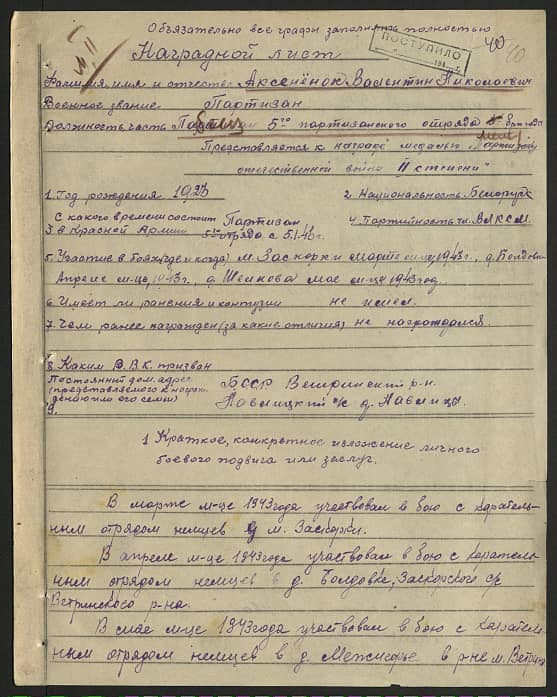 Обязательно все графы заполнить полностью
40
40
ПОСТУПИЛО
Наградной лист
Фамилия, имя и отчество Аксенёнок Валентин Николаевич
Военное звание Партизан
Должность часть 5го партизанского отряда
Представляется к награде медалью "Партизану
отечественной войны II степени"
1. Год рождения 2. Национальность Белорус
С какого времени состоит Партизан 4. Партийность чл. ВЛКСМ.
3 в Красной Армии 5го отряда с
5. Участие в боях (где и когда) м. Заскорки марте м-це 1943г., д. Болдовка
Апреле м-це, 1943г., д. мае м-це 1943 год.
6. Имеет ли ранения и контузии не имел.
7. Чем ранее награжден (за какие отличия) не награждался.
8 Каким Р.В.К. призван
Постоянный дом. адрес БССР Ветринский р-н.
(представляемого к награж.
дению или его семьи)
9.
1 Краткое, конкретное изложение личного
боевого подвига или заслуг.
В марте м-це 1943 года участвовал в бою с каратель-
ным отрядом немцев м. Заскорки.
В апреле м-це 1943 года участвовал в бою с каратель-
ным отрядом немцев в д. Болдовка, Заскорского с/с
Ветринского р-на.
В мае м-це 1943 года участвовал в бою с карател
ным отрядом немцев в д. Межнорье в р-не м. Ветрин